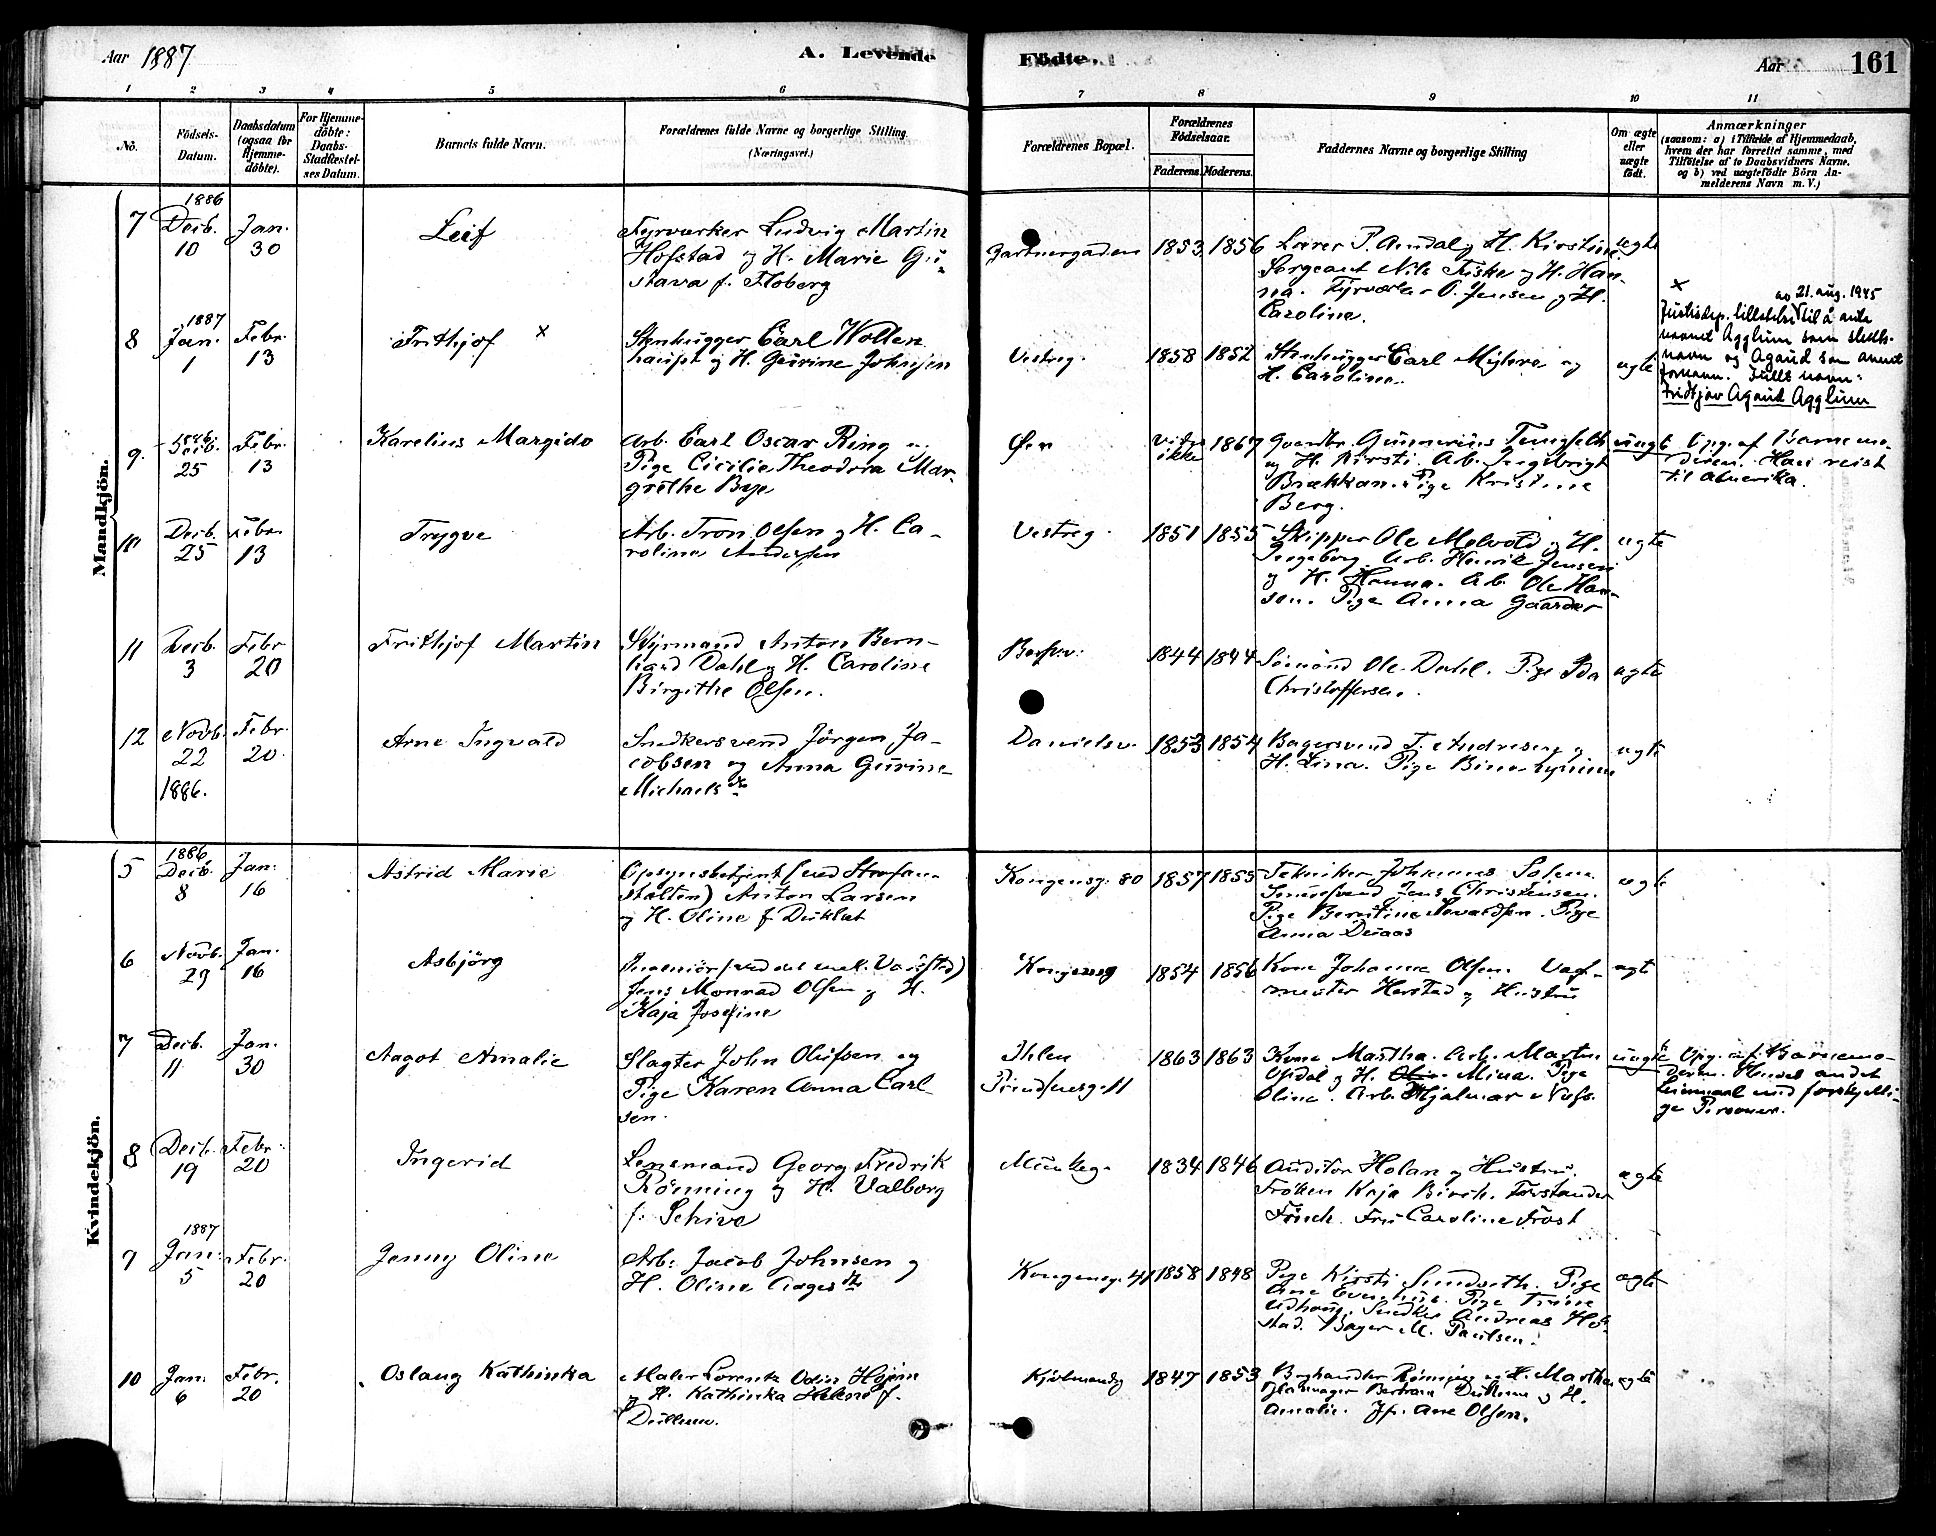 Aar 1887
A. Levende Födte.
Aar
161
1 2 3 4 5 6 7 8 9 10 11
No.
Födsels-Datum.
Daabsdatum (ogsaa for Hjemmedöbte).
For Hjemmedöbte: Daabs-Stadfæstelses Datum.
Barnets fulde Navn.
Forældrenes fulde Navne og borgerlige Stilling
(Næringsvei.)
Forældrenes Bopæl.
Forældrenes Födselsaar.
Faderens. Moderens.
Faddernes Navne og borgerlige Stilling
Om ægte eller uægte födt.
Anmærkninger
(saasom: a) i Tilfælde af Hjemmedaab, hvem der har forrettet samme, med Tilföielse af to Daabsvidners Navne, og b) ved uægtefödte Börn Anmelderens Navn m. V.)
Mandkjön.
7
1886
Decb. 10
Jan. 30
Leif
Fyrværker Ludvig Martin
Hofstad og H. Marie Gu-
stava f. Floberg
Gartnergaden
1853 1856
P. Aundal og H. Kirstine
Sergeant Nils Fiske og H. Han-
na. Fyrværker O. Jensen og H.
Caroline.
ægte
8
1887
Jan. 1
Febr. 13
Frithjof ×
Stenhugger Carl Wollen-
haupt og H. Gurine Johnsen
Vestreg.
1858 1852
Stenhugger Carl og
H. Caroline.
ægte
×
av 21. aug. 1945
Justisdep. tillatelse til å anta
navnet Agglum som slekts-
navn og Agaud som annet
fornavn. Fullt navn:
Fridtjov Agaud Agglum
9.
1886
Decb. 25
Febr. 13
Karelius Margido
Arb. Carl Oscar Ring og
Pige Cicilie Theodora Mar-
grethe Bye
Øen
Vides ikke 1867
Gunnerius
og H. Kirsti. Arb. Ingebrigt
Brækkan. Pige Kristine
Berg.
uægte
Opg. af Barnemo-
deren. Han reist
til Amerika.
10
Decb. 25
Febr. 13
Trygve
Arb. Tron Olsen og H. Ca-
roline Andersen
Vestreg
1851 1855
Skipper Ole Melvold og H.
Ingeborg. Arb. Henrik Jensen
og H. Hanna. Arb. Ole Han-
sen. Pige Anna Gaarder
ægte
11
Decb. 3
Febr 20
Frithjof Martin
Styrmand Anton Bern-
hard Dahl og H. Caroline
Birgithe Olsen.
1844 1844
Sömand Ole Dahl. Pige Ida
Christoffersen.
ægte
12
Novb. 22
1886.
Febr. 20.
Arne Ingvald
Snedkersvend Jörgen Ja-
cobsen og Anna Gurine
Michaelsdr
Danielsv.
1853 1854
Bagersvend T. Andresen og
H. Lina. Pige
ægte
Kvindekjön.
5
1886
Decb. 8
Jan. 16
Astrid Marie
Opsynsbetjent (ved Strafan-
stalten) Anton Larsen
og H. Oline f.
Kongensg. 80
1857 1853
Tekniker Johannes Solem
Smedsvend Jens Christensen.
Pige Berntine. Pige
Anna
ægte
6
Novb. 29
Jan. 16
Asbjörg
Ingeniör (ved det mek. Værksted)
Jens Monrad Olsen og H.
Kaja Josefine
Kongensg
1854 1856
Kone Johanne Olsen. Vagt-
mester Herstad og Hustru
ægte
7
Decb. 11
Jan. 30
Aagot Amalie
Slagter John Olufsen og
Pige Karen Anna Carl-
sen.
Ihlen
Prindsensg. 11
1863 1863
Kone Martha. Arb. Martin
Opdal og H. Mina. Pige
Oline. Arb. Hjalmar Næss.
uægte
Opg. af Barnemo-
deren. Hendes andet
Leiermaal med forskjelli-
ge Personer.
8
Decb. 19
Febr. 20
Ingerid
Lensmand Georg Fredrik
Rönning og H. Valborg
f. Schive
Munkeg.
1834 1846
Auditör Holan og Hustru.
Fröken Kaja Birch. Forstander
Finch. Fru Caroline Frost
ægte
9
1887
Jan. 5
Febr. 20
Jenny Oline
Arb. Jacob Johnsen og
H. Oline Aagesdtr
Kongensg. 41
1858 1848
Pige Kirsti Sundseth. Pige
Ane. Pige Trine
Udhaug. Snedker Andreas Hof-
stad. Bager M. Paulsen.
ægte
10
Jan. 6
Febr. 20
Oslaug Kathinka
Maler Lorentz Odin Höiem
og H. Kathinka Helene f.
Dullum.
Kjöbmandsg
1847 1853
Boghandler Rönning og H. Martha
Bertram Dullum og H.
Amalie. Jfr. Ane Olsen.
ægte